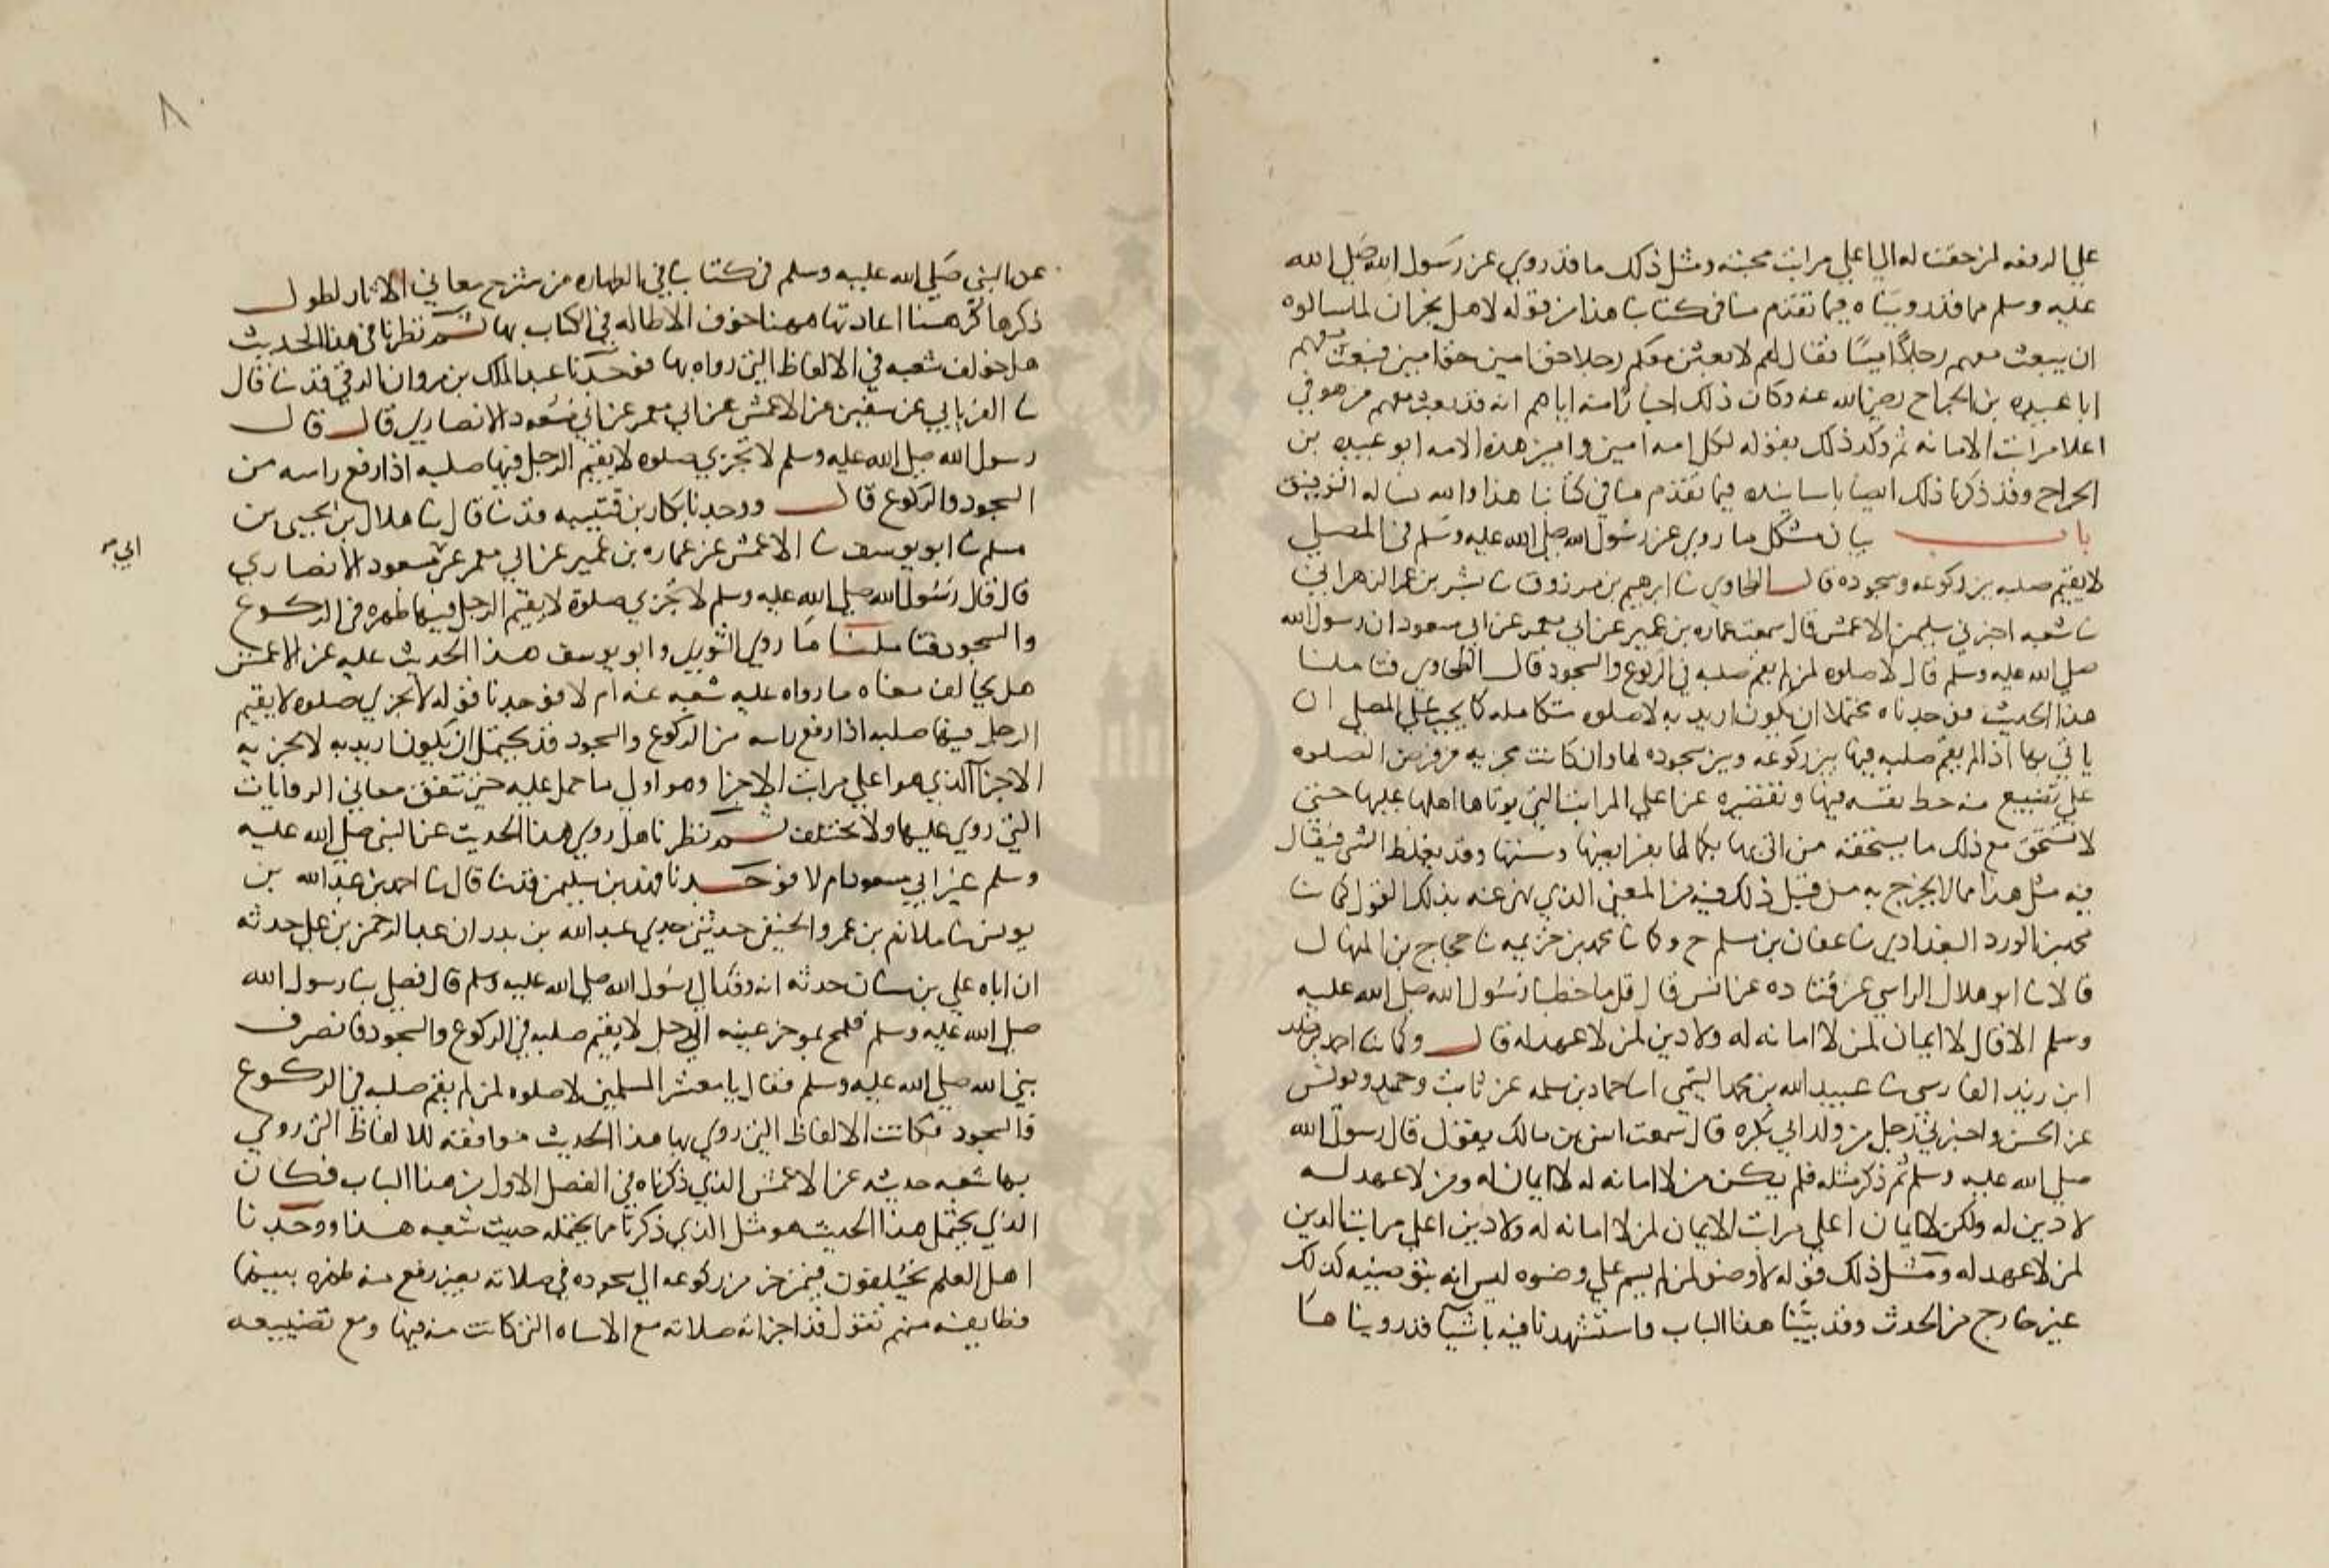 علي الرفعه لمن حقت له اليا علي مراتب محبته ومثل ذلك ما قد روي عن رسول الله صلي الله
عليه وسلم مما قد رويناه فيما تقدم منا في كتابنا هذا من قوله لاهل نجران لما سالوه
ان يبعث معهم رجلاً امينًا فقال لهم لابعثن معكم رجلا حق امين حق امين فبعث معهم
ابا عبيده بن الجراح رضي الله عنه وكان ذلك اخبارا منه اياهم انه قد بعث معهم من هو في
اعلا مراتب الامانه ثم وكد ذلك بقوله لكل امه امين وامين هذه الامه ابو عبيده بن
الجراح وقد ذكرنا ذلك ايضا باسانيده فيما تقدم منا في كتابنا هذا والله نساله التوفيق
باب بيان مشكل ما روي عن رسول الله صلي الله عليه وسلم في المصلي
لا يقيم صلبه بين ركوعه وسجوده قال الطحاوي ثنا ابرهيم بن مرزوق ثنا بشر بن عمر الزهراني
ثنا شعبه اخبرني سليمن الاعمش قال سمعت عماره بن عمير عن ابي معمر عن ابي مسعود ان رسول الله
صلي الله عليه وسلم قال لا صلوه لمن لم يقم صلبه في الركوع والسجود قال الطحاوي فتاملنا
هذا الحديث فوجدناه محتملا ان يكون اريد به لا صلوه متكامله كما يجب علي المصلي ان
ياتي بها اذا لم يقم صلبه فيها بين ركوعه وبين سجوده لها وان كانت مجزيه من فرض الصلوه
علي تضييع منه حظ نفسه فيها وتقصيره عن اعلي المراتب التي يوتاها اهلها عليها حتي
لا تستحق مع ذلك ما يستحقه من اتي بها بكمالها بفرايضها وسننها وقد يغلظ الشي فيقال
فيه مثل هذا مما لا يخرج به من قبل ذلك فيه من المعني الذي نهي عنه بذلك القول كما ثنا
محمد بن الورد البغدادي ثنا عفان بن مسلم ح وكما ثنا محمد بن خزيمه ثنا حجاج بن المنهال
قالا ثنا ابو هلال الراسبي عن قتاده عن انس قال قل ما خطبنا رسول الله صلي الله عليه
وسلم الا قال لا ايمان لمن لا امانه له ولا دين لمن لا عهد له قال وكما ثنا احمد بن خلد
ابن يزيد الفارسي ثنا عبيد الله بن محمد التيمي انا حماد بن سلمه عن ثابت وحميد ويونس
عن الحسن واخبرني رجل من ولد ابي بكره قال سمعت انس بن مالك يقول قال رسول الله
صلي الله عليه وسلم ثم ذكر مثله فلم يكن من لا امانه له لا ايمان له ومن لا عهد له
لا دين له ولكن لا ايمان اعلي مراتب الايمان لمن لا امانه له ولا دين اعلي مراتب الدين
لمن لا عهد له ومثل ذلك قوله لا وضو لمن لم يسم علي وضوه ليس انه بتوضيه كذلك
غير خارج من الحدث وقد بيّنا هذا الباب واستشهدنا فيه باشيآ قد روينا ها
عن النبي صلي الله عليه وسلم في كتابنا في الطهاره من شرح معاني الاثار لطول
ذكرها كرهنا اعادتها ههنا خوف الاطاله في الكتاب بها ثم نظرنا في هذا الحديث
هل خولف شعبه في الالفاظ التي رواه بها فوجدنا عبد الملك بن مروان الرقي قد ثنا قال
ثنا الفريابي عن سفين عن الاعمش عن ابي معمر عن ابي مسعود الانصاري قال قال
رسول الله صلي الله عليه وسلم لا تجزي صلوه لا يقيم الرجل فيها صلبه اذا رفع راسه من
السجود والركوع قال ووجدنا بكار بن قتيبه قد ثنا قال ثنا هلال بن يحيي بن
مسلم ثنا ابو يوسف ثنا الاعمش عن عماره بن عمير عن ابي معمر عن مسعود الانصاري
ابي
قال قال رسول الله صلي الله عليه وسلم لا تجزي صلوة لا يقيم الرجل فيها ظهره في الركوع
والسجود فتاملنا ما روي الثوري وابو يوسف هذا الحديث عليه عن الاعمش
هل يخالف معناه ما رواه عليه شعبه عنه ام لا فوجدنا قوله لا تجزي صلوه لا يقيم
الرجل فيها صلبه اذا رفع راسه من الركوع والسجود قد يحتمل ان يكون اريد به لا تجزيه
الاجزآ الذي هو اعلي مراتب الاجزا وهو اولي ما حمل عليه حتي تتفق معاني الروايات
التي روي عليها ولا تختلف ثم نظرنا هل روي هذا الحديث عن النبي صلي الله عليه
وسلم عن غير ابي مسعود ام لا فوجدنا فهد بن سليمن قد ثنا قال ثنا احمد بن عبد الله بن
يونس ثنا ملازم بن عمرو الحنفي حدثني جدي عبد الله بن بدر ان عبد الرحمن بن علي حدثه
ان اباه علي بن شيبان حدثه انه وفد الي رسول الله صلي الله عليه وسلم قال فصلي بنا رسول الله
صلي الله عليه وسلم فلمح بموخر عينه الي رجل لا يقيم صلبه في الركوع والسجود فانصرف
نبي الله صلي الله عليه وسلم فقال يا معشر المسلمين لا صلوه لمن لم يقم صلبه في الركوع
والسجود فكانت الالفاظ التي روي بها هذا الحديث موافقة للالفاظ التي روي
بها شعبه حديثه عن الاعمش الذي ذكرناه في الفصل الاول من هذا الباب فكان
الذي يحتمل هذا الحديث هو مثل الذي ذكرنا مما يحتمله حديث شعبه هذا ووجدنا
اهل العلم يختلفون فيمن خر من ركوعه الي سجوده في صلاته بغير رفع منه ظهره بينهما
فطايفه منهم تقول قد اجزاته صلاته مع الاساه التي كانت منه فيها ومع تضييعه